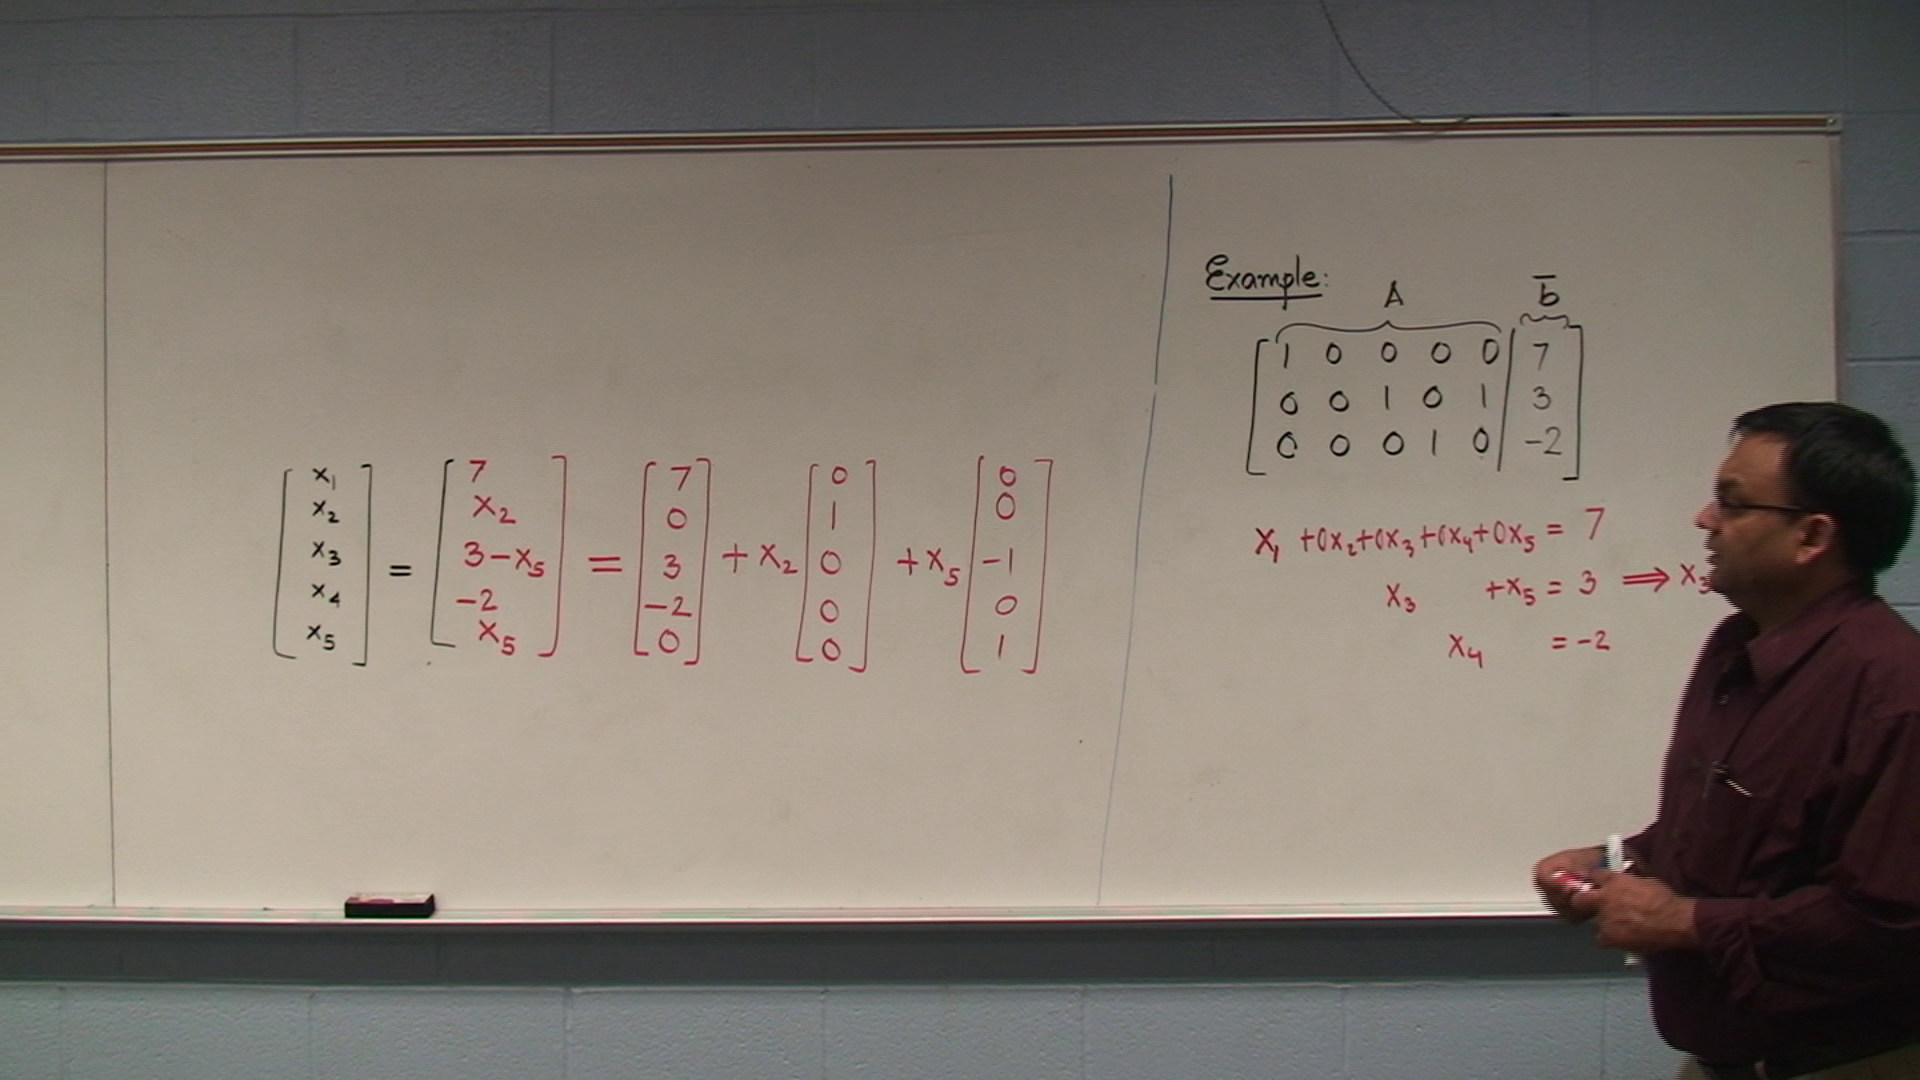 [x₁ x₂ x₃ x₄ x₅] = [7 x₂ 3-x₅ -2 x₅] = [7 0 3 -2 0] + x₂ [0 1 0 0 0] + x₅ [0 0 -1 0 1]
Example:
A b̅
[1 0 0 0 0 | 7
0 0 1 0 1 | 3
0 0 0 1 0 | -2]
x₁ +0x₂+0x₃+0x₄+0x₅ = 7
x₃ +x₅ = 3 ⟹ x₃
x₄ = -2